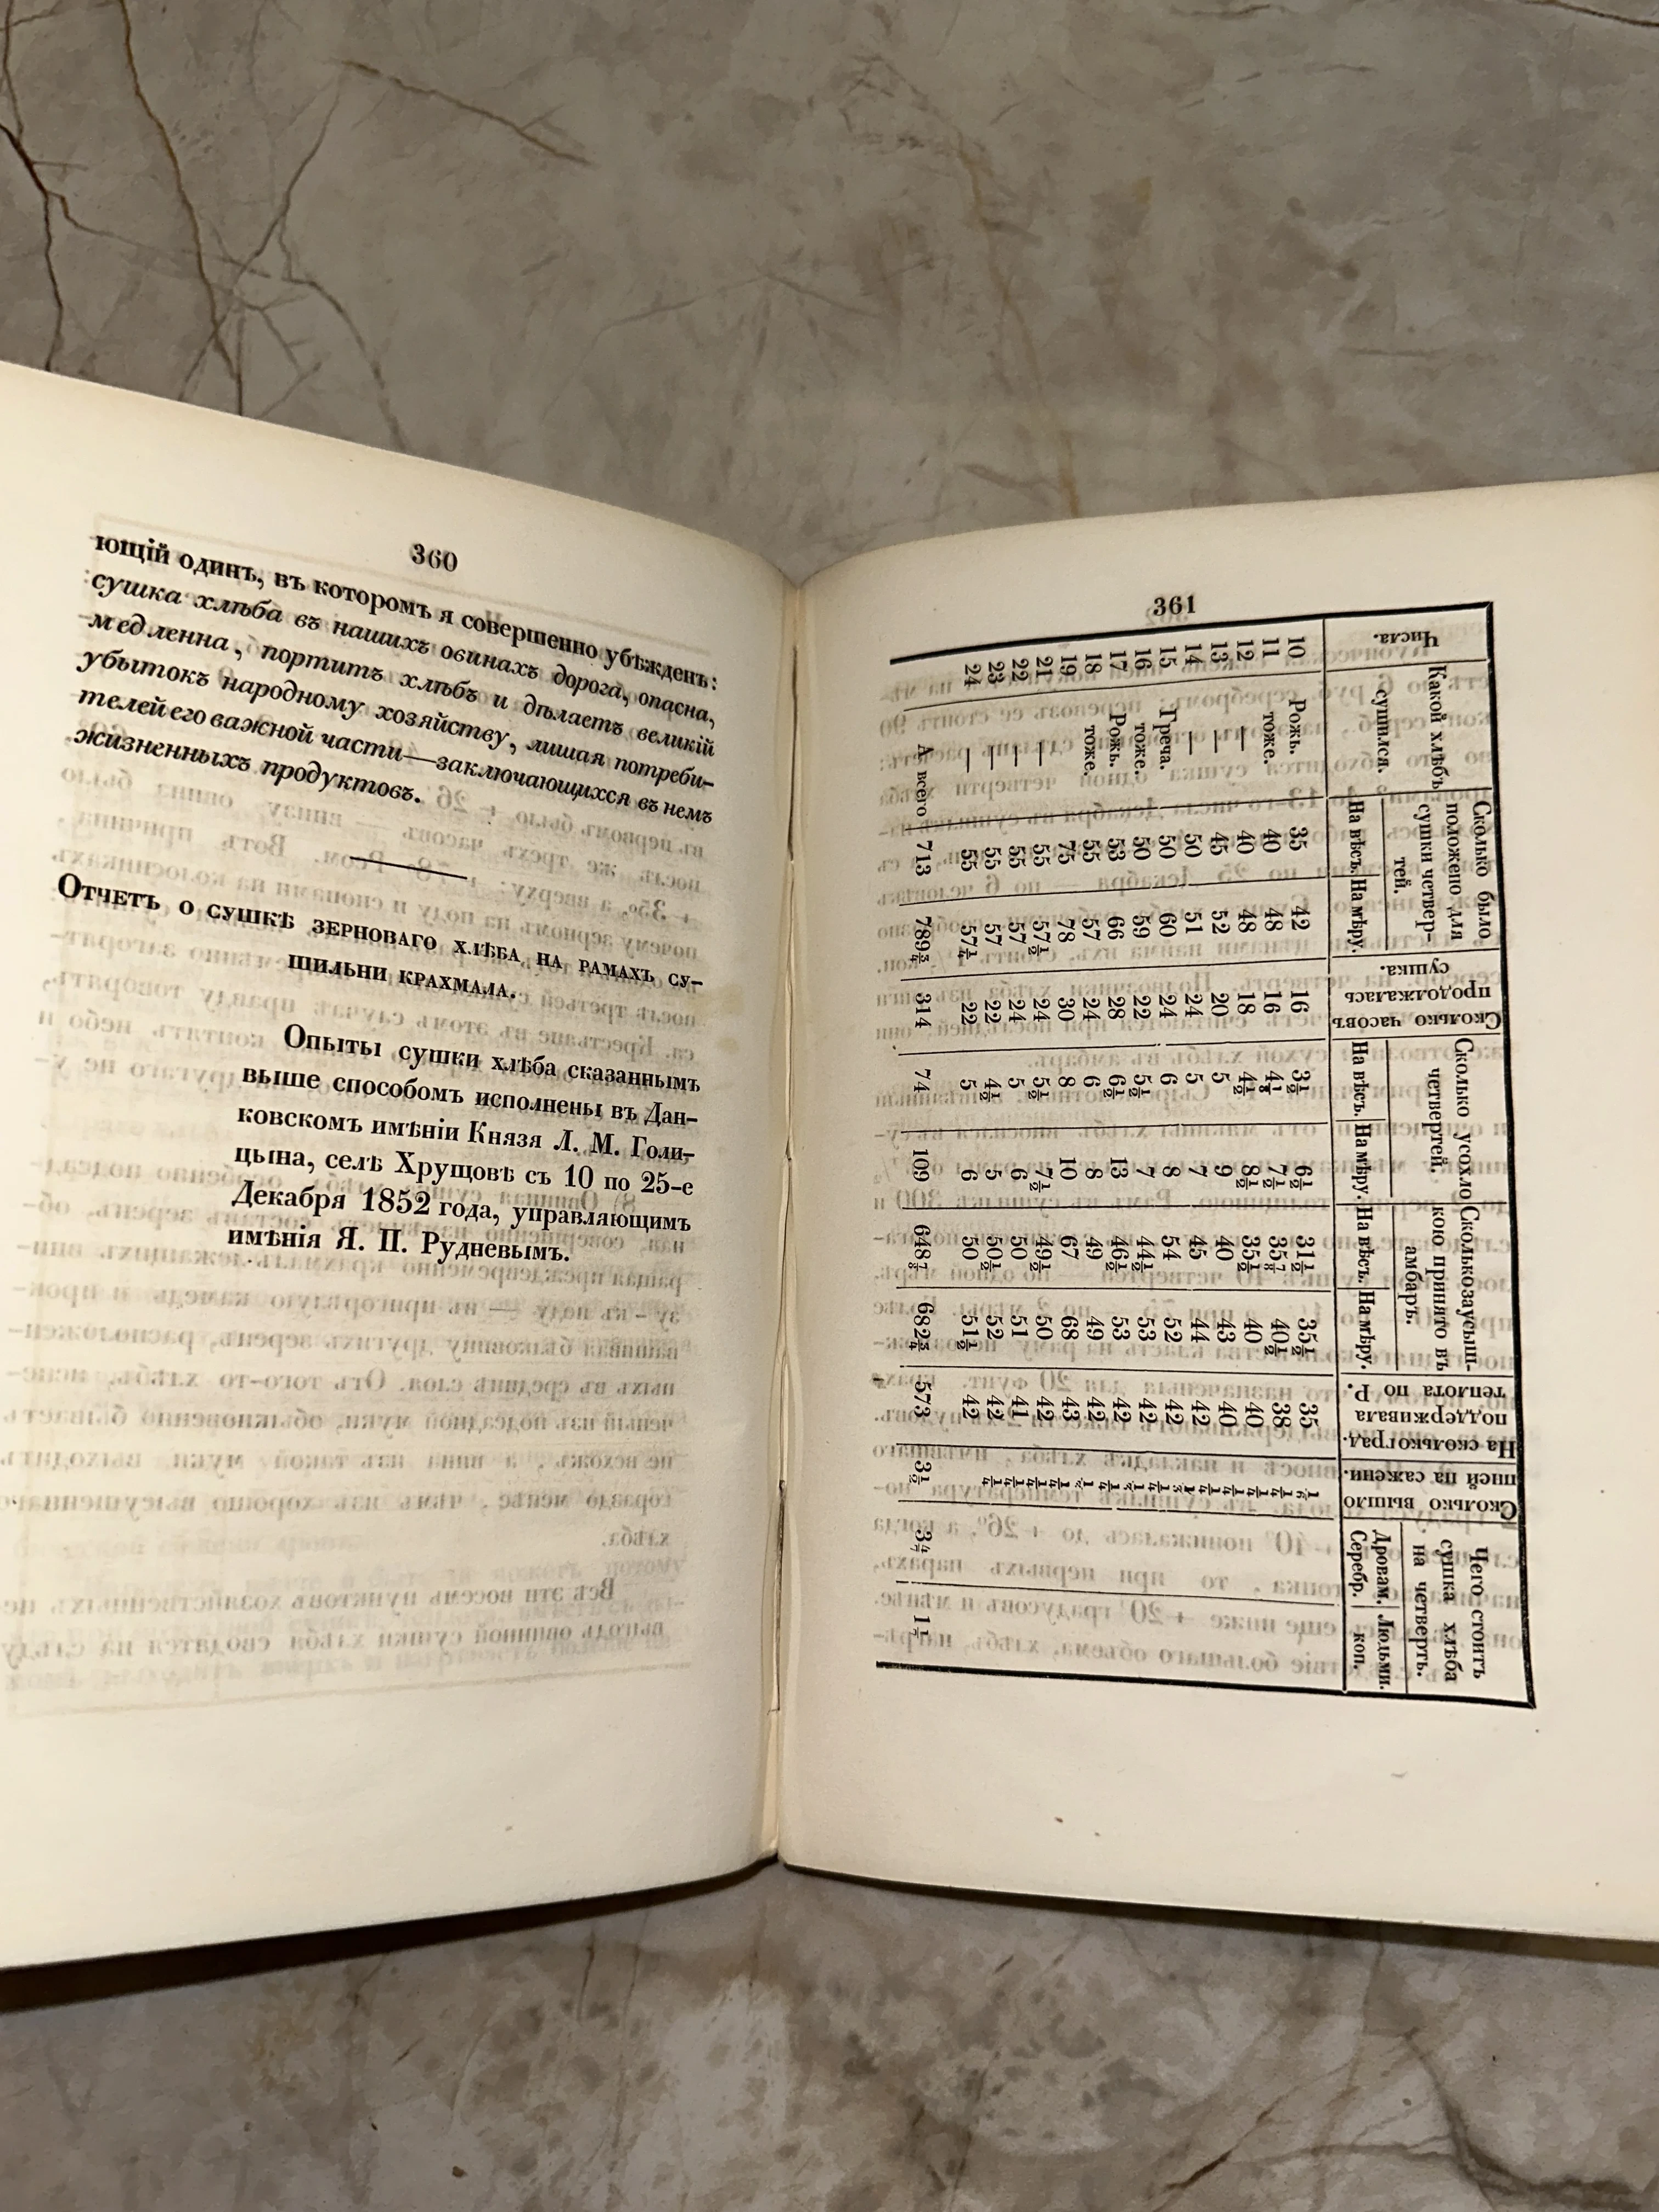 360
ющій одинъ, въ которомъ я совершенно убѣжденъ:
сушка хлѣба въ нашихъ овинахъ дорога, опасна,
медленна, портитъ хлѣбъ и дѣлаетъ великій
убытокъ народному хозяйству, лишая потреби-
телей его важной части—заключающихся въ немъ
жизненныхъ продуктовъ.
Отчетъ о сушкѣ зерноваго хлѣба на рамахъ су-
шильни крахмала.
Опыты сушки хлѣба сказаннымъ
выше способомъ исполнены въ Дан-
ковскомъ имѣніи Князя Л. М. Голи-
цына, селѣ Хрущовѣ съ 10 по 25-е
Декабря 1852 года, управляющимъ
имѣнія Я. П. Рудневымъ.
361
Числа. | Какой хлѣбъ сушился. | Сколько было положено для сушки четвертей. На вѣсъ. На мѣру. | Сколько часовъ продолжалась сушка. | Сколько усохло четвертей. На вѣсъ. На мѣру. | Сколько за усышкою принято въ амбаръ. На вѣсъ. На мѣру. | На сколько град. поддерживала теплота по Р. | Сколько вышло саженей. | Чего стоитъ сушка хлѣба на четверть. Дровам. Серебр. Людьми. коп.
10 Рожь. 35 42 16 3½ 6½ 31½ 35½ 35
11 тоже. 40 48 16 4⅛ 7½ 35⅞ 40½ 38 ¼
12 — 40 48 18 4½ 8½ 35½ 40 40 ¼
13 — 45 52 20 5 9 40 43 40 ¼
14 — 50 51 24 5 7 45 44 42 ¼
15 Греча. 50 60 24 6 8 54 52 42
16 тоже. 50 59 22 5½ 7 44½ 53 42 ¼
17 Рожь. 53 66 28 6½ 13 46½ 53 42
18 тоже. 55 57 24 6 8 49 49 42 ¼
19 75 78 30 8 10 67 68 43
21 — 55 57½ 24 5½ 7½ 49½ 50 42 ¼
22 — 55 57 24 5 6 50 51 41 ¼
23 — 55 57 22 4½ 5 50½ 52 42 ¼
24 — 55 57¼ 22 5 6 50 51½ 42 ¼
А всего 713 789¾ 314 74 109 648⅞ 682¾ 573 3½ 3⁴⁄₇